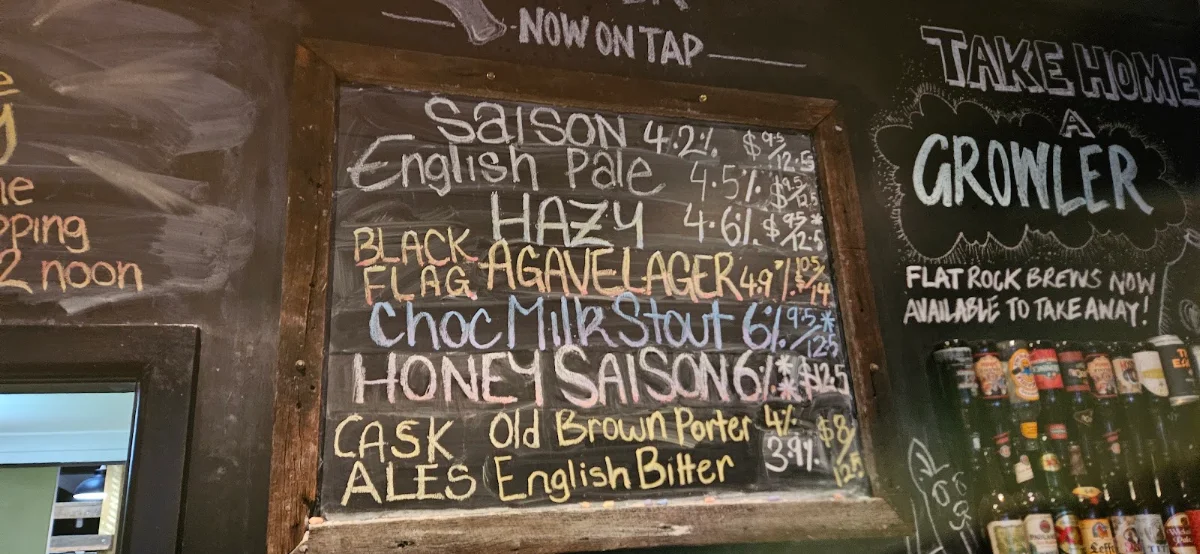 NOW ON TAP
SAISON 4.2% $9.5/12.5
English Pale 4.5% $9.5/12.5
HAZY 4.6% $9.5*/12.5
BLACK FLAG AGAVE LAGER 4.9% 10.5/14
Choc Milk Stout 6% 9.5*/12.5
HONEY SAISON 6% ** $12.5
CASK ALES
Old Brown Porter 4% $8/12.5
English Bitter 3.9%
TAKE HOME
A
GROWLER
FLAT ROCK BREWS NOW
AVAILABLE TO TAKE AWAY!
pping
2 noon